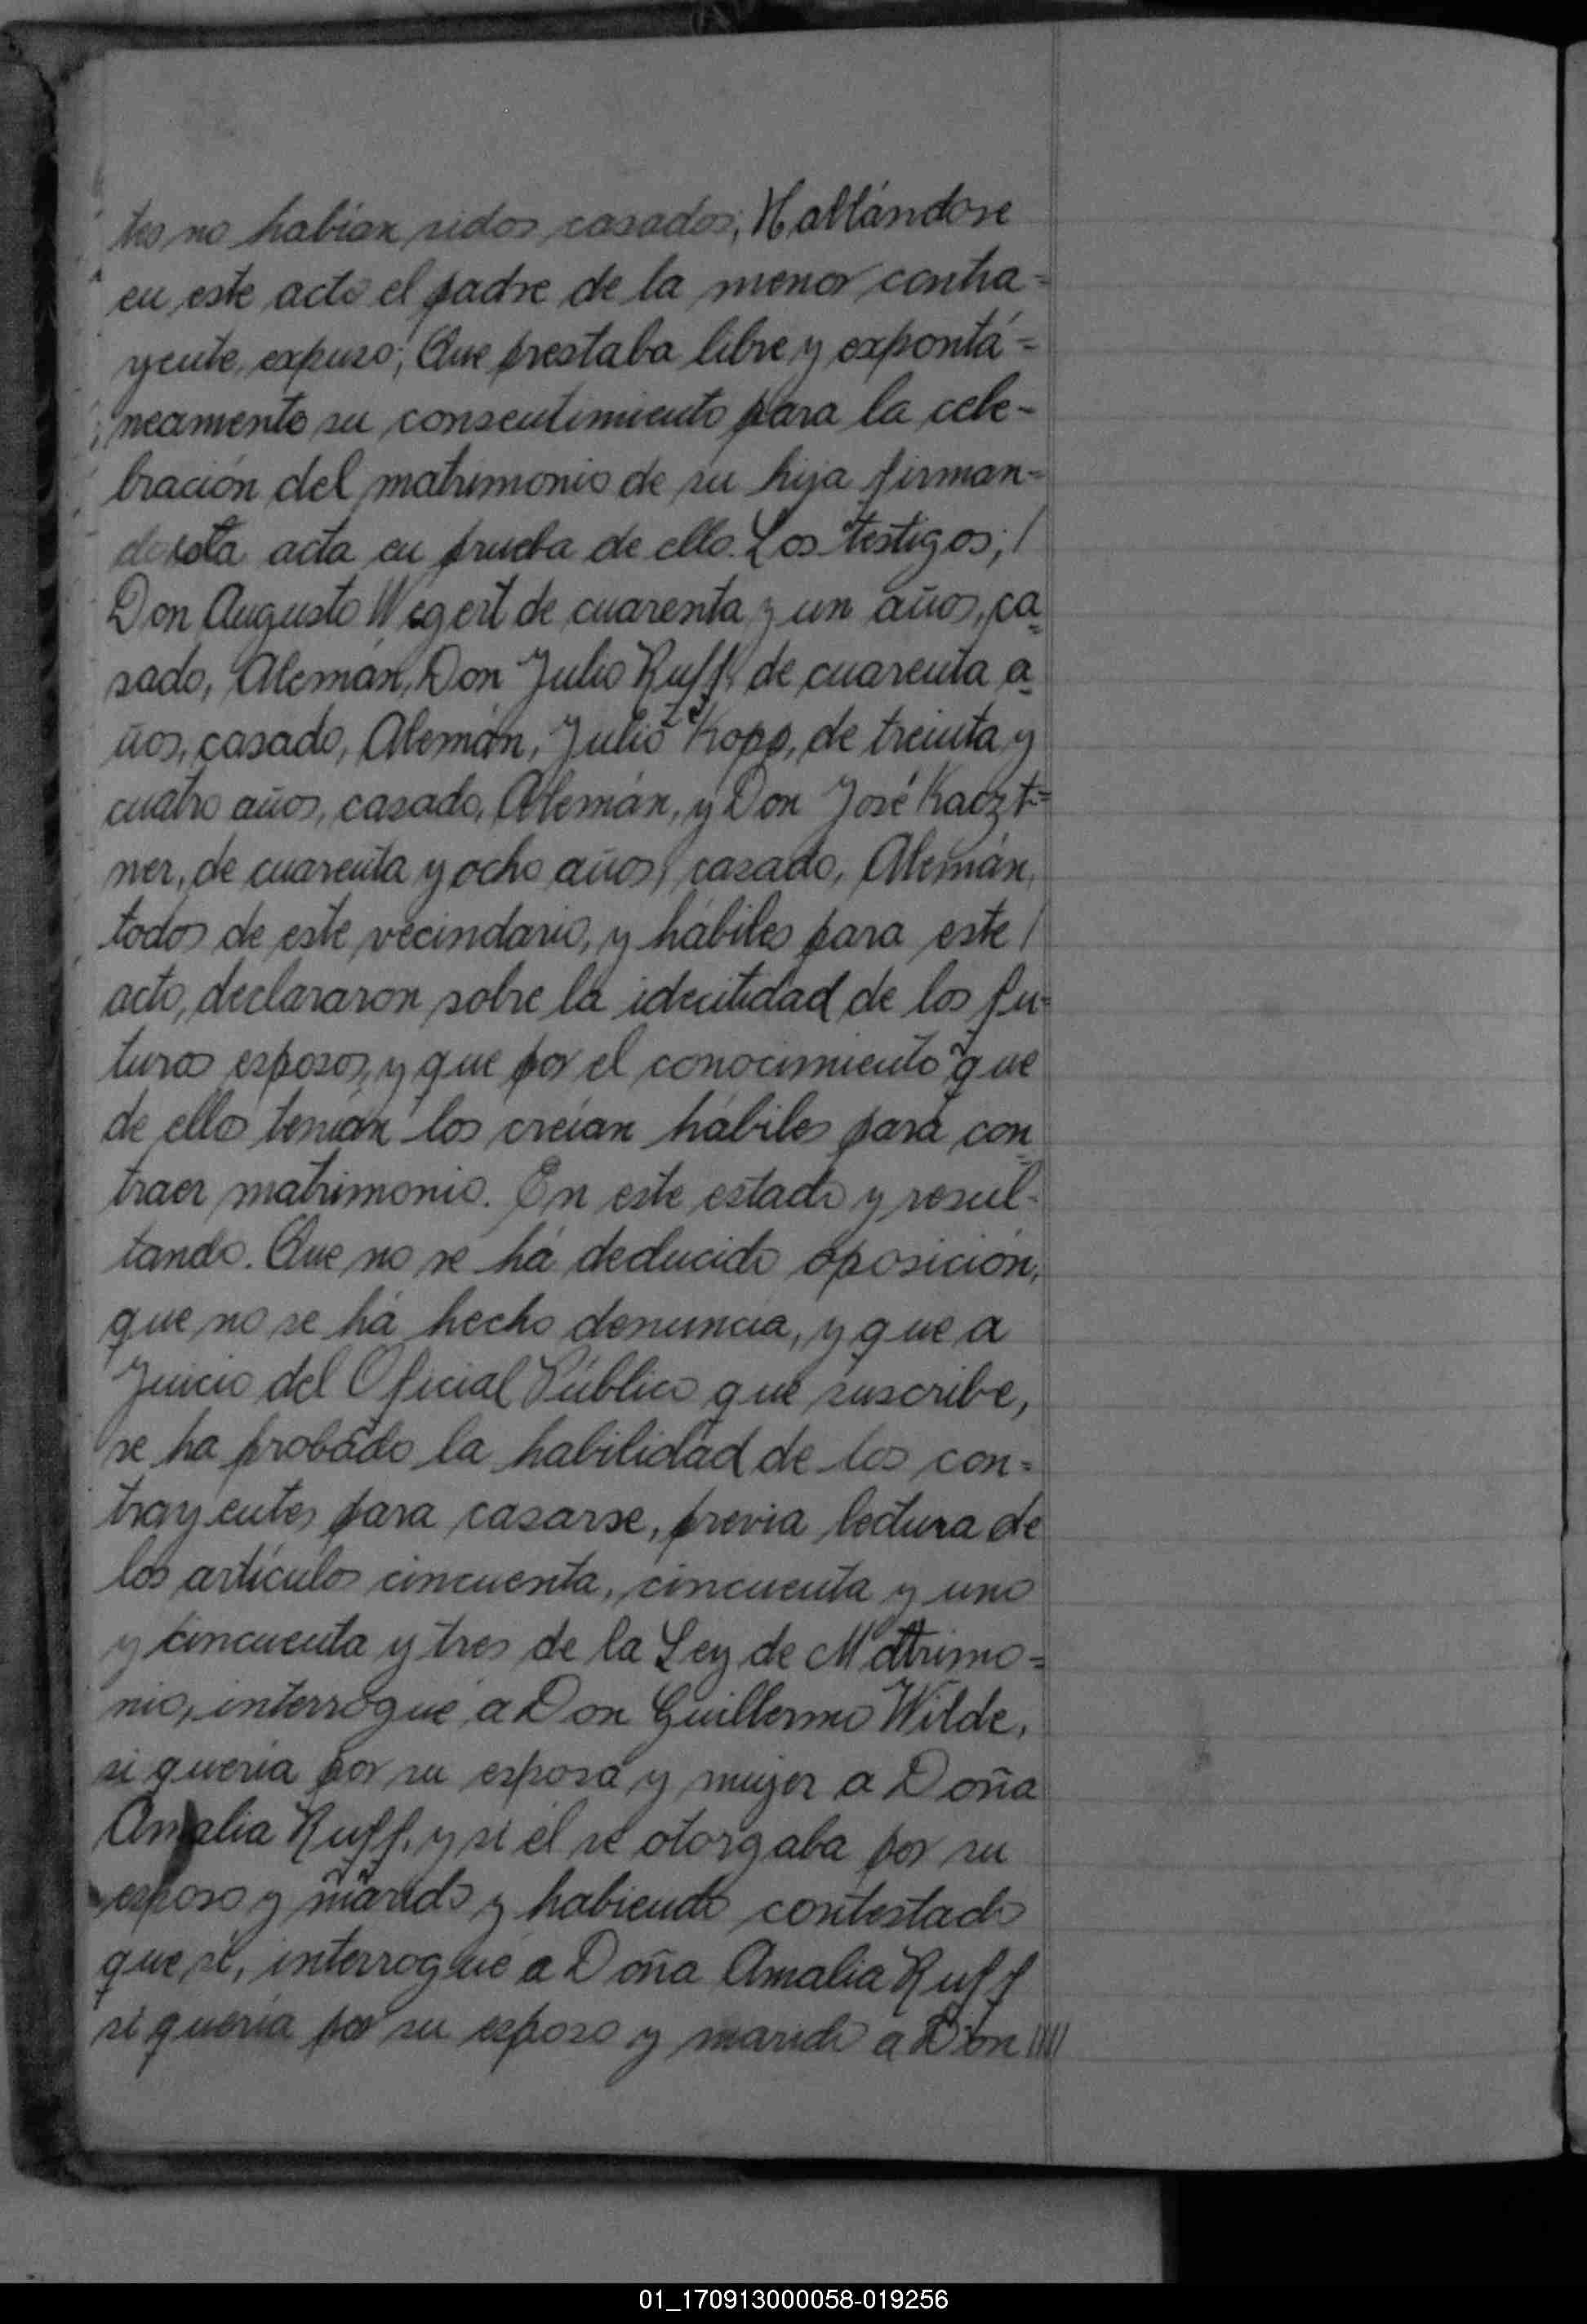 tes no habían sidos casados; Hallándose
en este acto el padre de la menor contra=
yente, expuso; Que prestaba libre y expontá=
neamente su consentimiento para la cele-
bración del matrimonio de su hija firman=
do esta acta en prueba de ello. Los testigos; /
Don Augusto Wegert de cuarenta y un años, ca=
sado, Alemán, Don Julio Ruff, de cuarenta a=
ños, casado, Alemán, Julio Kopp, de treinta y
cuatro años, casado, Alemán, y Don José Kaozt=
ner, de cuarenta y ocho años, casado, Alemán,
todos de este vecindario, y hábiles para este /
acto, declararon sobre la identidad de los fu=
turos esposos, y que por el conocimiento que
de ellos tenían los creían hábiles para con=
traer matrimonio. En este estado y resul-
tando. Que no se há deducido oposición,
que no se há hecho denuncia, y que a
Juicio del Oficial Público que suscribe,
se ha probado la habilidad de los con=
trayentes para casarse, previa lectura de
los artículos cincuenta, cincuenta y uno
y cincuenta y tres de la Ley de Matrimo=
nio, interrogué a Don Guillermo Wilde,
si quería por su esposa y mujer a Doña
Amalia Ruff, y si él se otorgaba por su
esposo y marido y habiendo contestado
que sí, interrogué a Doña Amalia Ruff
si quería por su esposo y marido a Don ////
01_170913000058-019256